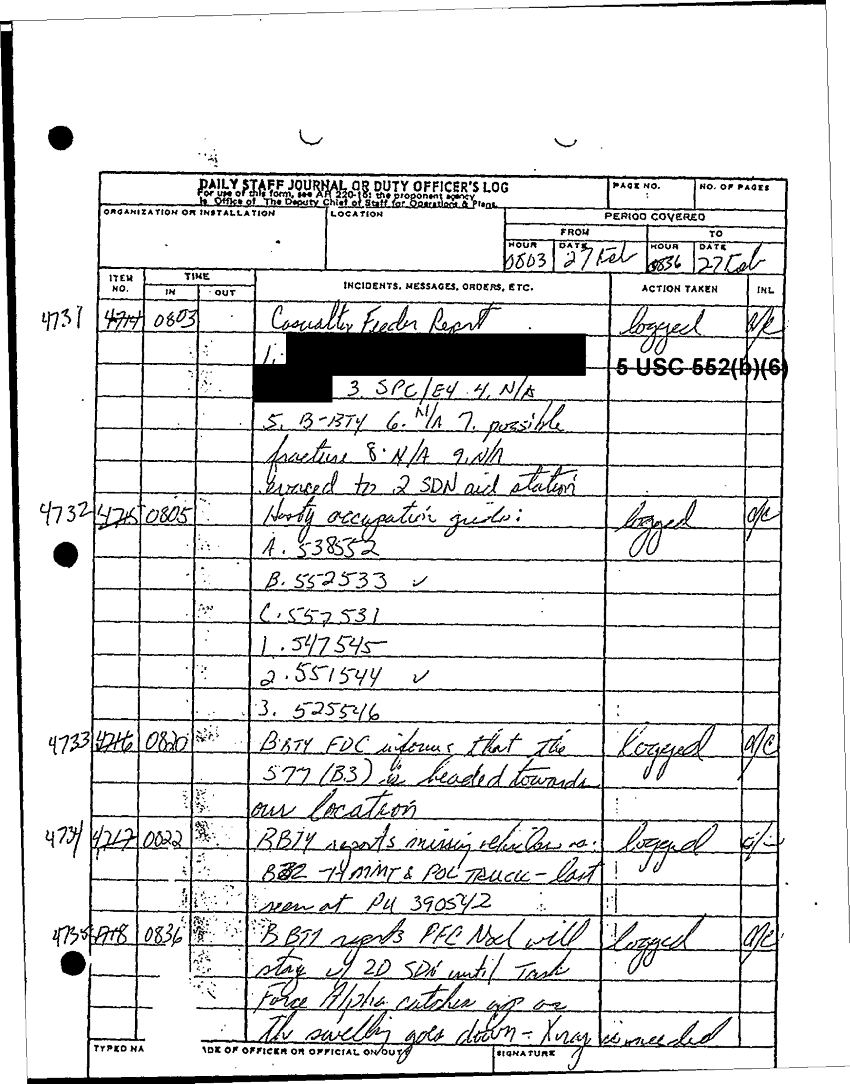 DAILY STAFF JOURNAL OR DUTY OFFICER'S LOG
For use of this form, see AR 220-15; the proponent agency
is Office of The Deputy Chief of Staff for Operations & Plans.
PAGE NO.
NO. OF PAGES
ORGANIZATION OR INSTALLATION
LOCATION
PERIOD COVERED
FROM
TO
HOUR
DATE
HOUR
DATE
0803
27 Feb
0836
27 Feb
ITEM NO.
TIME
IN
OUT
INCIDENTS, MESSAGES, ORDERS, ETC.
ACTION TAKEN
INL
4731 4714 0803 Casualty Feeder Report logged
1.
5 USC 552(b)(6)
3. SPC/E4 4. N/A
5. B-BTY 6. N/A 7. possible
fracture 8. N/A 9. N/A
evaced to 2 SDN aid station
4732 4715 0805 Hasty occupation grids: logged
A. 538552
B. 552533 ✓
C. 557531
1. 547545
2. 551544 ✓
3. 525546
4733 4716 0820 B BTY FDC informs that the logged
577 (B3) is headed towards
our location
4734 4717 0022 BBTY reports missing vehicles as: logged
B32 - HMMT & POL TRUCK - last
seen at PU 390542
4735 0836 B BTY reports PFC Noel will logged
stay w/ 2D SDN until Task
Force Alpha catches up or
the swelling goes down - Xray is needed
TYPED NA
ADE OF OFFICER OR OFFICIAL ON DUTY
SIGNATURE